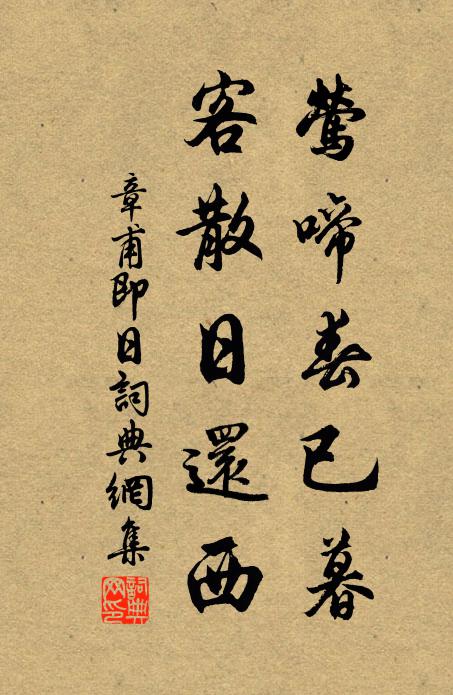 鶯啼春已暮
客散日還西
章甫即日詞典網集
詞典网印